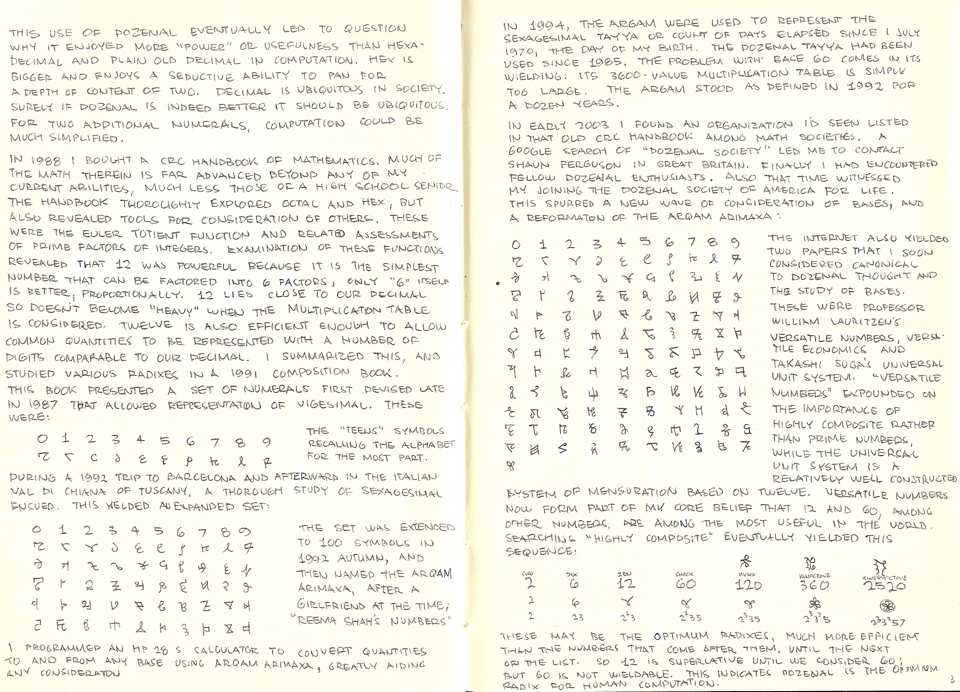 THIS USE OF DOZENAL EVENTUALLY LED TO QUESTION
WHY IT ENJOYED MORE "POWER" OR USEFULNESS THAN HEXA-
DECIMAL AND PLAIN OLD DECIMAL IN COMPUTATION. HEX IS
BIGGER AND ENJOYS A SEDUCTIVE ABILITY TO PAN FOR
A DEPTH OF CONTENT OF TWO. DECIMAL IS UBIQUITOUS IN SOCIETY.
SURELY IF DOZENAL IS INDEED BETTER IT SHOULD BE UBIQUITOUS.
FOR TWO ADDITIONAL NUMERALS, COMPUTATION COULD BE
MUCH SIMPLIFIED.
IN 1988 I BOUGHT A CRC HANDBOOK OF MATHEMATICS. MUCH OF
THE MATH THEREIN IS FAR ADVANCED BEYOND ANY OF MY
CURRENT ABILITIES, MUCH LESS THOSE OF A HIGH SCHOOL SENIOR.
THE HANDBOOK THOROUGHLY EXPLORED OCTAL AND HEX, BUT
ALSO REVEALED TOOLS FOR CONSIDERATION OF OTHERS. THESE
WERE THE EULER TOTIENT FUNCTION AND RELATED ASSESSMENTS
OF PRIME FACTORS OF INTEGERS. EXAMINATION OF THESE FUNCTIONS
REVEALED THAT 12 WAS POWERFUL BECAUSE IT IS THE SIMPLEST
NUMBER THAT CAN BE FACTORED INTO 6 FACTORS, ONLY "6" ITSELF
IS BETTER, PROPORTIONALLY. 12 LIES CLOSE TO OUR DECIMAL
SO DOESN'T BECOME "HEAVY" WHEN THE MULTIPLICATION TABLE
IS CONSIDERED. TWELVE IS ALSO EFFICIENT ENOUGH TO ALLOW
COMMON QUANTITIES TO BE REPRESENTED WITH A NUMBER OF
DIGITS COMPARABLE TO OUR DECIMAL. I SUMMARIZED THIS, AND
STUDIED VARIOUS RADIXES IN A 1991 COMPOSITION BOOK.
THIS BOOK PRESENTED A SET OF NUMERALS FIRST DEVISED LATE
IN 1987 THAT ALLOWED REPRESENTATION OF VIGESIMAL. THESE
WERE:
0 1 2 3 4 5 6 7 8 9
THE "TEENS" SYMBOLS
RECALLING THE ALPHABET
FOR THE MOST PART.
DURING A 1992 TRIP TO BARCELONA AND AFTERWARD IN THE ITALIAN
VAL DI CHIANA OF TUSCANY, A THOROUGH STUDY OF SEXAGESIMAL
ENSUED. THIS YIELDED AN EXPANDED SET:
0 1 2 3 4 5 6 7 8 9
THE SET WAS EXTENDED
TO 100 SYMBOLS IN
1992 AUTUMN, AND
THEN NAMED THE ARQAM
ARIMAXA, AFTER A
GIRLFRIEND AT THE TIME;
"REEMA SHAH'S NUMBERS"
I PROGRAMMED AN HP 28 S CALCULATOR TO CONVERT QUANTITIES
TO AND FROM ANY BASE USING ARQAM ARIMAXA, GREATLY AIDING
ANY CONSIDERATION
IN 1994, THE ARQAM WERE USED TO REPRESENT THE
SEXAGESIMAL TAYYA OR COUNT OF DAYS ELAPSED SINCE 1 JULY
1970, THE DAY OF MY BIRTH. THE DOZENAL TAYYA HAD BEEN
USED SINCE 1985. THE PROBLEM WITH BASE 60 COMES IN ITS
WIELDING: ITS 3600-VALUE MULTIPLICATION TABLE IS SIMPLY
TOO LARGE. THE ARQAM STOOD AS DEFINED IN 1992 FOR
A DOZEN YEARS.
IN EARLY 2003 I FOUND AN ORGANIZATION I'D SEEN LISTED
IN THAT OLD CRC HANDBOOK AMONG MATH SOCIETIES. A
GOOGLE SEARCH OF "DOZENAL SOCIETY" LED ME TO CONTACT
SHAUN FERGUSON IN GREAT BRITAIN. FINALLY I HAD ENCOUNTERED
FELLOW DOZENAL ENTHUSIASTS. ALSO THAT TIME WITNESSED
MY JOINING THE DOZENAL SOCIETY OF AMERICA FOR LIFE.
THIS SPURRED A NEW WAVE OF CONSIDERATION OF BASES, AND
A REFORMATON OF THE ARQAM ARIMAXA:
0 1 2 3 4 5 6 7 8 9
THE INTERNET ALSO YIELDED
TWO PAPERS THAT I SOON
CONSIDERED CANONICAL
TO DOZENAL THOUGHT AND
THE STUDY OF BASES.
THESE WERE PROFESSOR
WILLIAM LAURITZEN'S
VERSATILE NUMBERS, VERSA-
TILE ECONOMICS AND
TAKASHI SUGA'S UNIVERSAL
UNIT SYSTEM. "VERSATILE
NUMBERS" EXPOUNDED ON
THE IMPORTANCE OF
HIGHLY COMPOSITE RATHER
THAN PRIME NUMBERS,
WHILE THE UNIVERSAL
UNIT SYSTEM IS A
RELATIVELY WELL CONSTRUCTED
SYSTEM OF MENSURATION BASED ON TWELVE. VERSATILE NUMBERS
NOW FORM PART OF MY CORE BELIEF THAT 12 AND 60, AMONG
OTHER NUMBERS, ARE AMONG THE MOST USEFUL IN THE WORLD.
SEARCHING "HIGHLY COMPOSITE" EVENTUALLY YIELDED THIS
SEQUENCE:
2 6 12 60 120 360 2520
2 6
2 23 2²3 2²35 2³35 2³3²5 2³3²57
THESE MAY BE THE OPTIMUM RADIXES, MUCH MORE EFFICIENT
THAN THE NUMBERS THAT COME AFTER THEM, UNTIL THE NEXT
ON THE LIST. SO 12 IS SUPERLATIVE UNTIL WE CONSIDER 60;
BUT 60 IS NOT WIELDABLE. THIS INDICATES DOZENAL IS THE OPTIMUM
RADIX FOR HUMAN COMPUTATION.
3